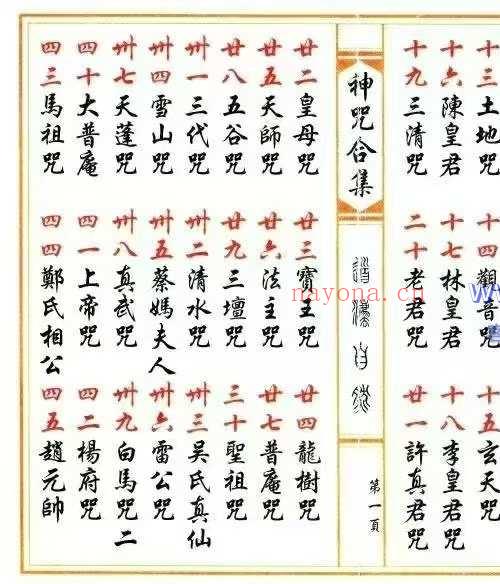 十三土地咒
十四觀音咒
十五玄天咒
十六陳皇君
十七林皇君咒
十八李皇君咒
十九三清咒
二十老君咒
廿一許真君咒
神咒合集
道灋自然
第一頁
廿二皇母咒
廿三寶王咒
廿四龍樹咒
廿五天師咒
廿六法主咒
廿七普庵咒
廿八五谷咒
廿九三壇咒
三十聖祖咒
卅一三代咒
卅二清水咒
卅三吳氏真仙
卅四雪山咒
卅五蔡媽夫人
卅六雷公咒
卅七天蓬咒
卅八真武咒
卅九白馬咒二
四十大普庵
四一上帝咒
四二楊府咒
四三馬祖咒
四四鄭氏相公
四五趙元帥
nayona.cn